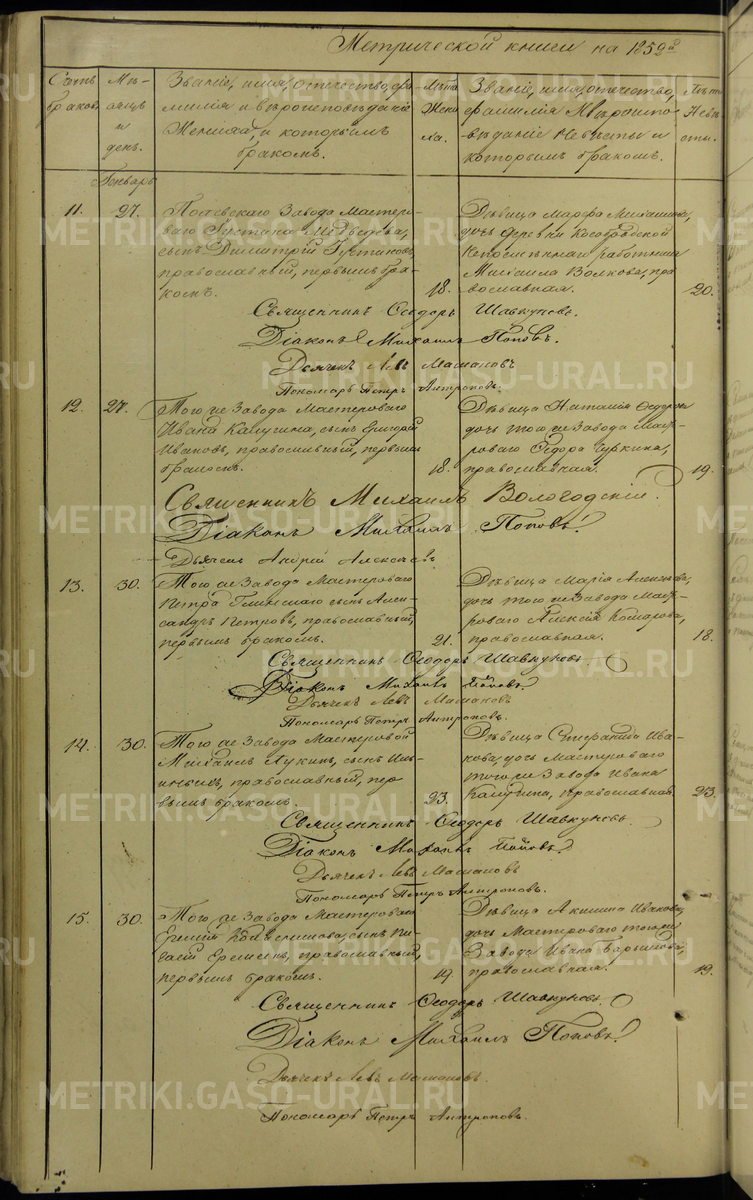 Метрической книги на 1859й
Счетъ браковъ.
Мѣсяцъ и день.
Званіе, имя, отечество, фамилія и вѣроисповѣданіе Жениха и которымъ бракомъ.
Лѣта Жениха.
Званіе, имя, отечество, фамилія и вѣроисповѣданіе Невѣсты и которымъ бракомъ.
Лѣта Невѣсты.
Генварь
11. 27.
завода Мастероваго Медведева,
сынъ Димитрій
православный, первымъ бракомъ.
18.
Дѣвица Марфа Михаилова,
дочь деревни Кособродской
работника
Михаила Волкова, православная.
20.
Священникъ Ѳеодоръ Шавкуновъ.
Діаконъ Михаилъ Поповъ.
Дьячекъ Левъ
Пономарь Петръ Антроповъ.
12. 27.
Того же Завода Мастероваго
Ивана Калугина, сынъ Григорій
Ивановъ, православный, первымъ
бракомъ.
18.
Дѣвица Наталія Ѳедорова
дочь того же завода Мастероваго
Ѳедора
православная.
19.
Священникъ Михаилъ Вологодскій.
Діаконъ Михаилъ Поповъ.
Дьячекъ Андрей Алексѣевъ
13. 30.
Того же Завода Мастероваго
Петра сынъ Александръ
Петровъ, православный,
первымъ бракомъ.
21.
Дѣвица Марія Алексѣева,
дочь того же завода Мастероваго
Алексія Комарова,
православная.
18.
Священникъ Ѳеодоръ Шавкуновъ
Діаконъ Михаилъ Поповъ.
Дьячекъ Левъ
Пономарь Петръ Антроповъ.
14. 30.
Того же Завода Мастеровой
Михаилъ Лукинъ, сынъ
православный, первымъ бракомъ.
23.
Дѣвица Стефанида Иванова,
дочь Мастероваго
того же Завода Ивана
Калугина, Православная.
23.
Священникъ Ѳеодоръ Шавкуновъ.
Діаконъ Михаилъ Поповъ.
Дьячекъ Левъ
Пономарь Петръ Антроповъ.
15. 30.
Того же Завода Мастероваго
сынъ
православный,
первымъ бракомъ.
19
Дѣвица Акилина Иванова,
дочь Мастероваго того же
Завода Ивана
православная.
19.
Священникъ Ѳеодоръ Шавкуновъ.
Діаконъ Михаилъ Поповъ.
Дьячекъ Левъ
Пономарь Петръ Антроповъ.
METRIKI.GASO-URAL.RU